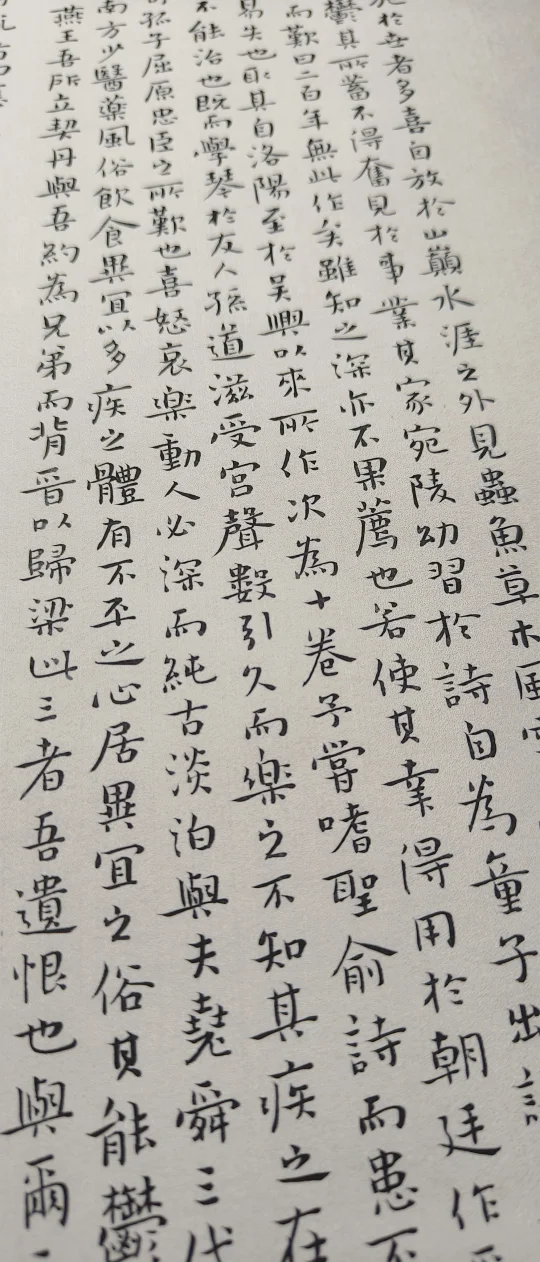 於世者多喜自放於山巔水涯之外見蟲魚草木風
鬱其所蓄不得奮見於事業其家宛陵幼習於詩自為童子出
而歎曰二百年無此作矣雖知之深亦不果薦也若使其幸得用於朝廷作
易失也取其自洛陽至於吳興以來所作次為十卷予嘗嗜聖俞詩而患不
不能治也既而學琴於友人孫道滋受宮聲數引久而樂之不知其疾之在
孤子屈原忠臣之所歎也喜怒哀樂動人必深而純古淡泊與夫堯舜三代
南方少醫藥風俗飲食異宜以多疾之體有不平之心居異宜之俗其能鬱
燕王吾所立契丹與吾約為兄弟而背晉以歸梁此三者吾遺恨也與爾